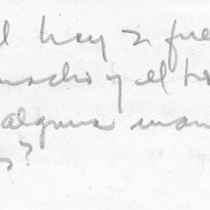 l hay 2 fue
macho y el h
alguna man
s?